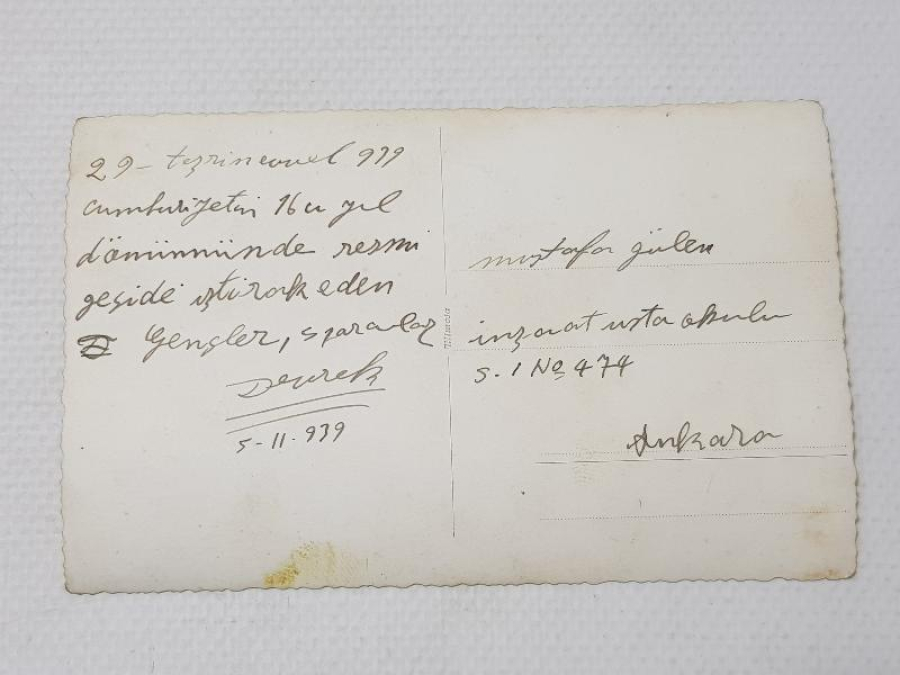 29 - teşrinevvel 939
cumhuriyetin 16 cı yıl
dönümünde resmi
geçide iştirak eden
Gençler, sporcular
Devrek
5-11-939
mustafa gülen
inşaat usta okulu
S. 1 No 474
Ankara